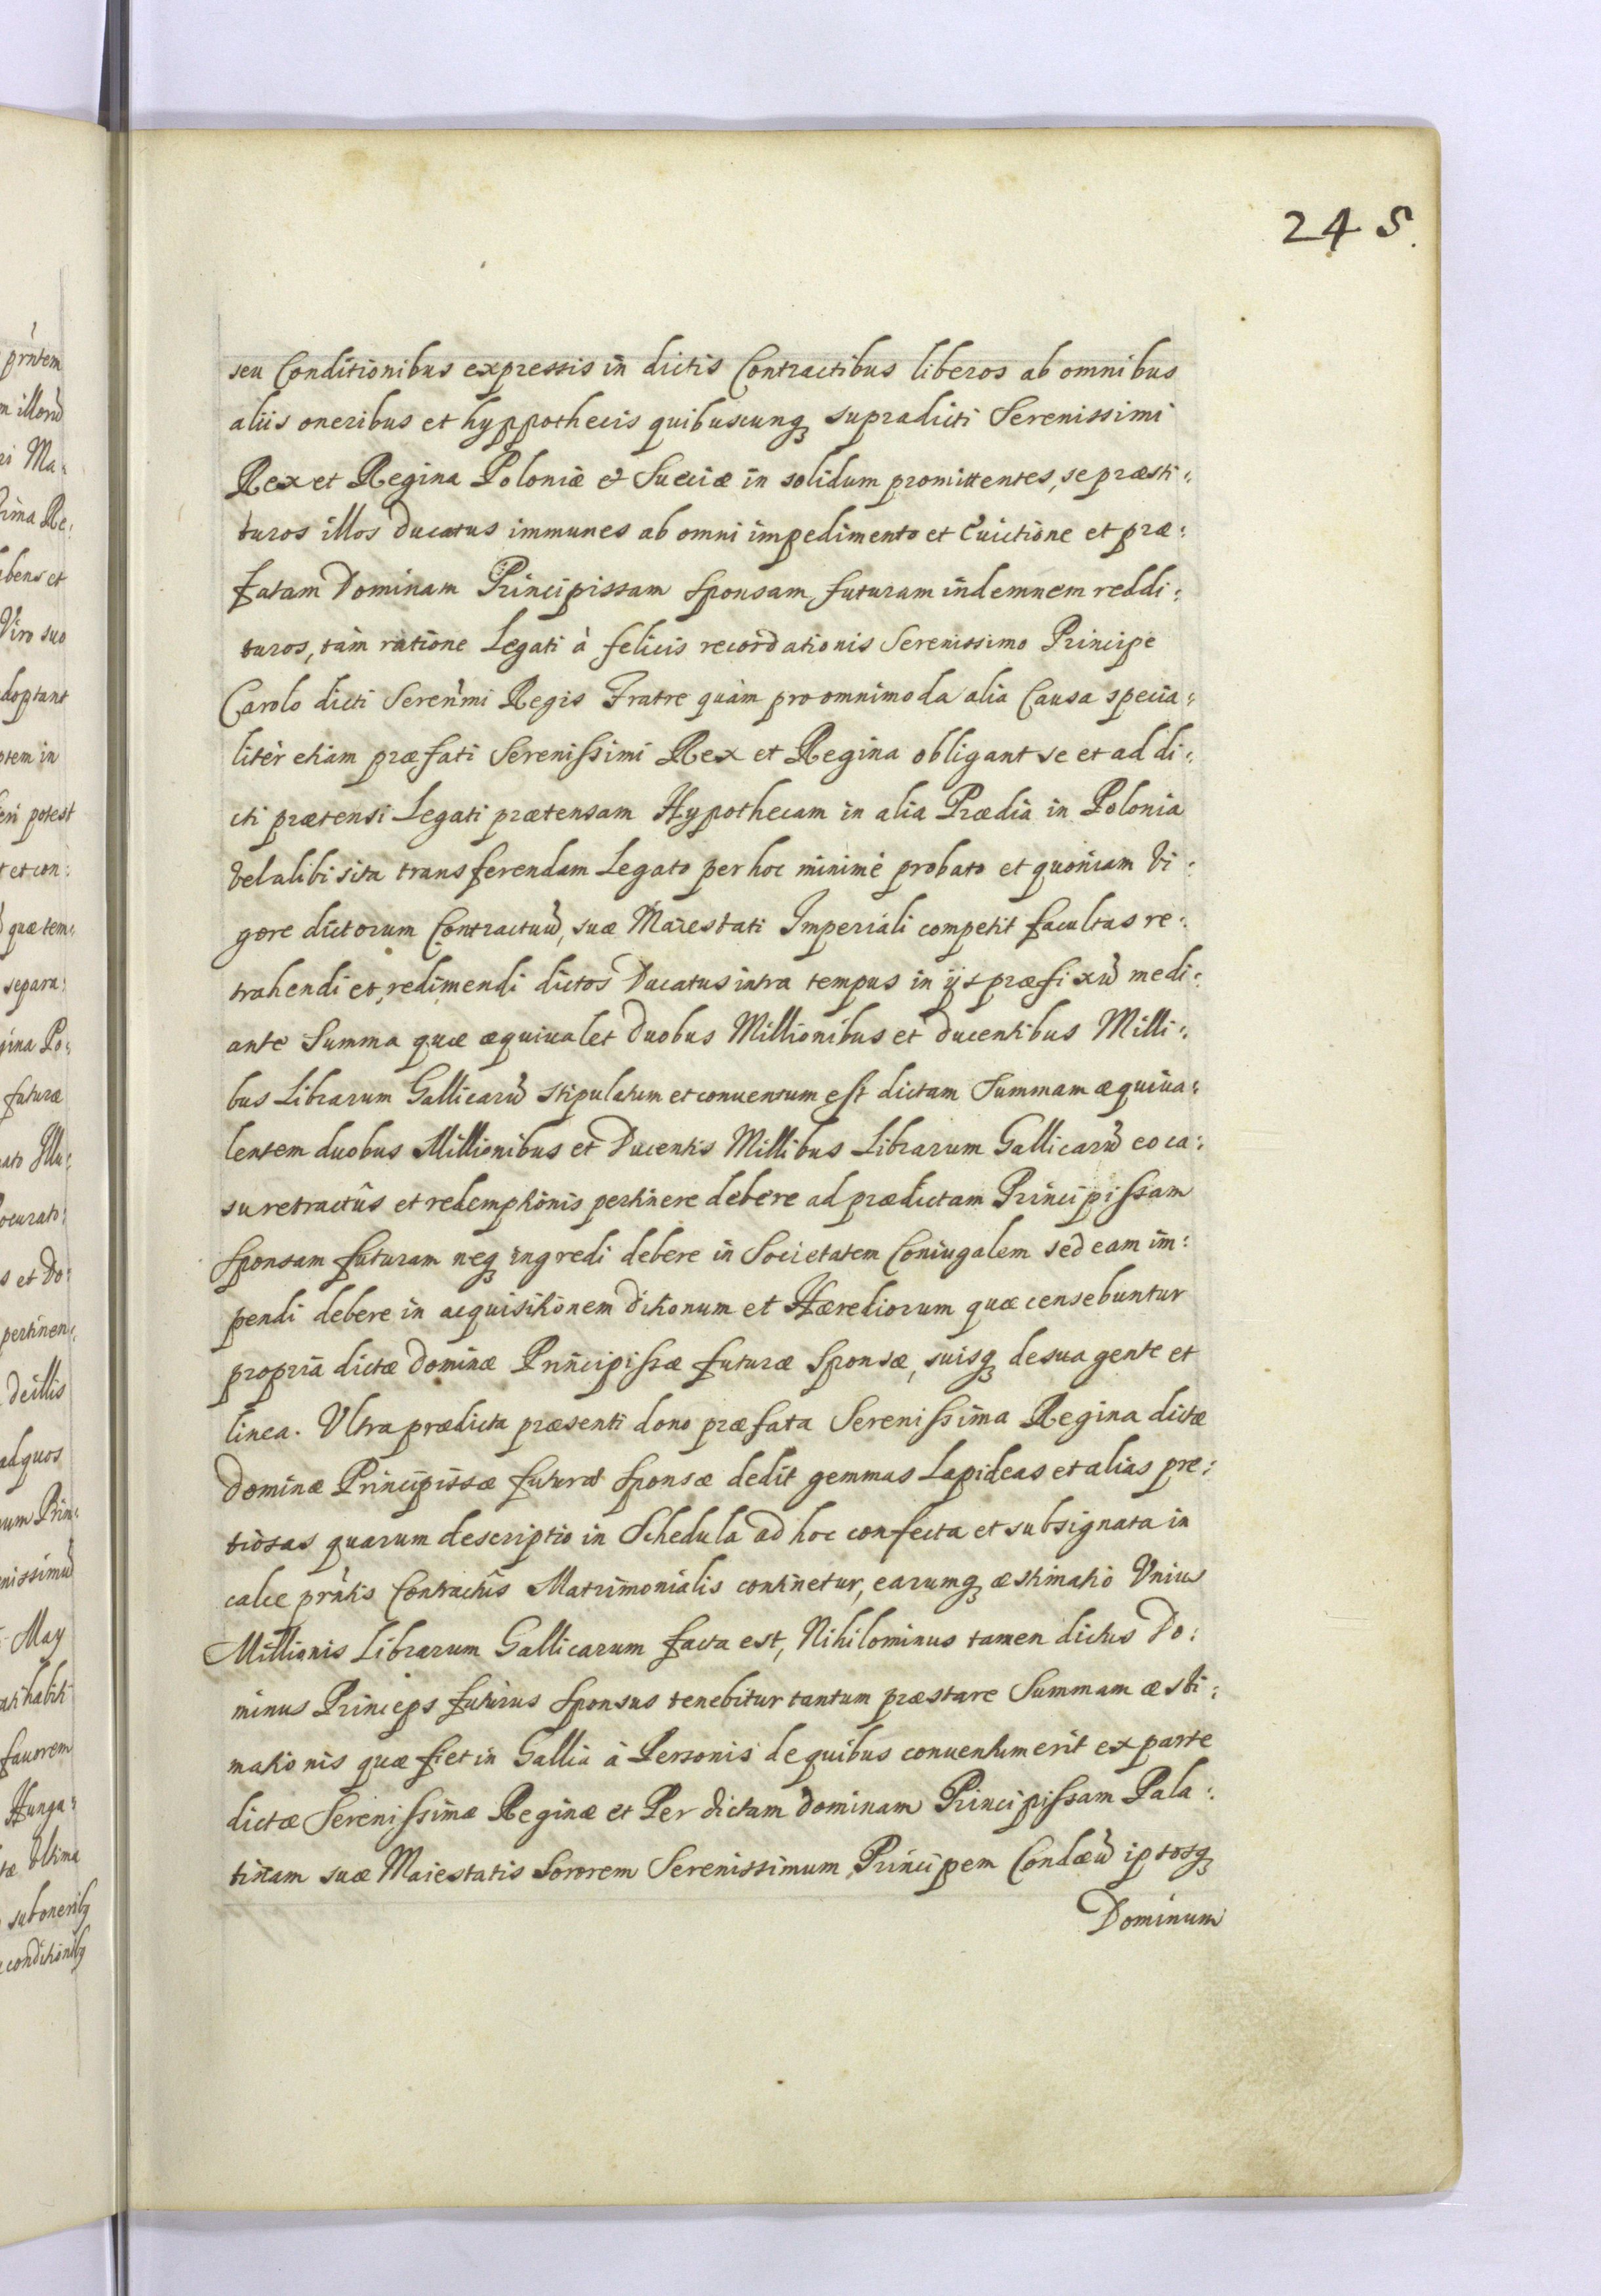 245.
seu Conditionibus expressis in dictis Contractibus liberos ab omnibus
aliis oneribus et hyppothecis quibuscunq̢ supradicti Serenissimi
Rex et Regina Poloniæ & Sueciæ in solidum promittentes, se præsti:
turos illos Ducatus immunes ab omni impedimento et Euictione et præ:
fatam Dominam Principissam Sponsam futuram indemnem reddi:
turos, tàm ratione Legati à felicis recordationis Serenissimo Principe
Carolo dicti Seren̄mi Regis Fratre quàm pro omnimoda alia Causa specia:
litèr etiam præfati Serenissimi Rex et Regina obligant se et ad di:
cti prætensi Legati prætensam Hypothecam in alia Prædia in Polonia
vel alibi sita transferendam Legato per hoc minimè probato et quoniam Vi:
gore dictorum Contractuū, suæ Maiestati Imperiali competit facultas re:
trahendi et redimendi dictos Ducatus intra tempus in ijs præfixū medi:
ante Summa quæ æquiualet Duobus Millionibus et ducentibus Milli:
bus Librarum Gallicarū stipulatum et conuentum est dictam Summam æquiua:
lentem duobus Millionibus et Ducentis Millibus Librarum Gallicarū eo ca:
su retractûs et redemptionis pertinere debere ad prædictam Principissam
Sponsam futuram neq̢ ingredi debere in Societatem Coniugalem sed eam im:
pendi debere in acquisitionem ditionum et Hærediorum quæ censebuntur
propria dictæ Dominæ Principissæ futuræ Sponsæ, suisq̢ de sua gente et
linea. Vltra prædicta præsenti dono præfata Serenissima Regina dictæ
Dominæ Principissæ futuræ Sponsæ dedit gemmas Lapideas et alias pre:
tiosas quarum descriptio in Schedula ad hoc confecta et subsignata in
calce prn̄tis Contractûs Matrimonialis continetur, earumq̢ æstimatio Vnius
Millionis Librarum Gallicarum facta est, Nihilominus tamen dictus Do:
minus Princeps futurus Sponsus tenebitur tantum præstare Summam æsti:
mationis quæ fiet in Gallia à Personis de quibus conuentum erit ex parte
dictæ Serenissimæ Reginæ et Per dictam Dominam Principissam Pala:
tinam suæ Maiestatis Sororem Serenissimum Principem Condæū ipsosq̢
Dominum